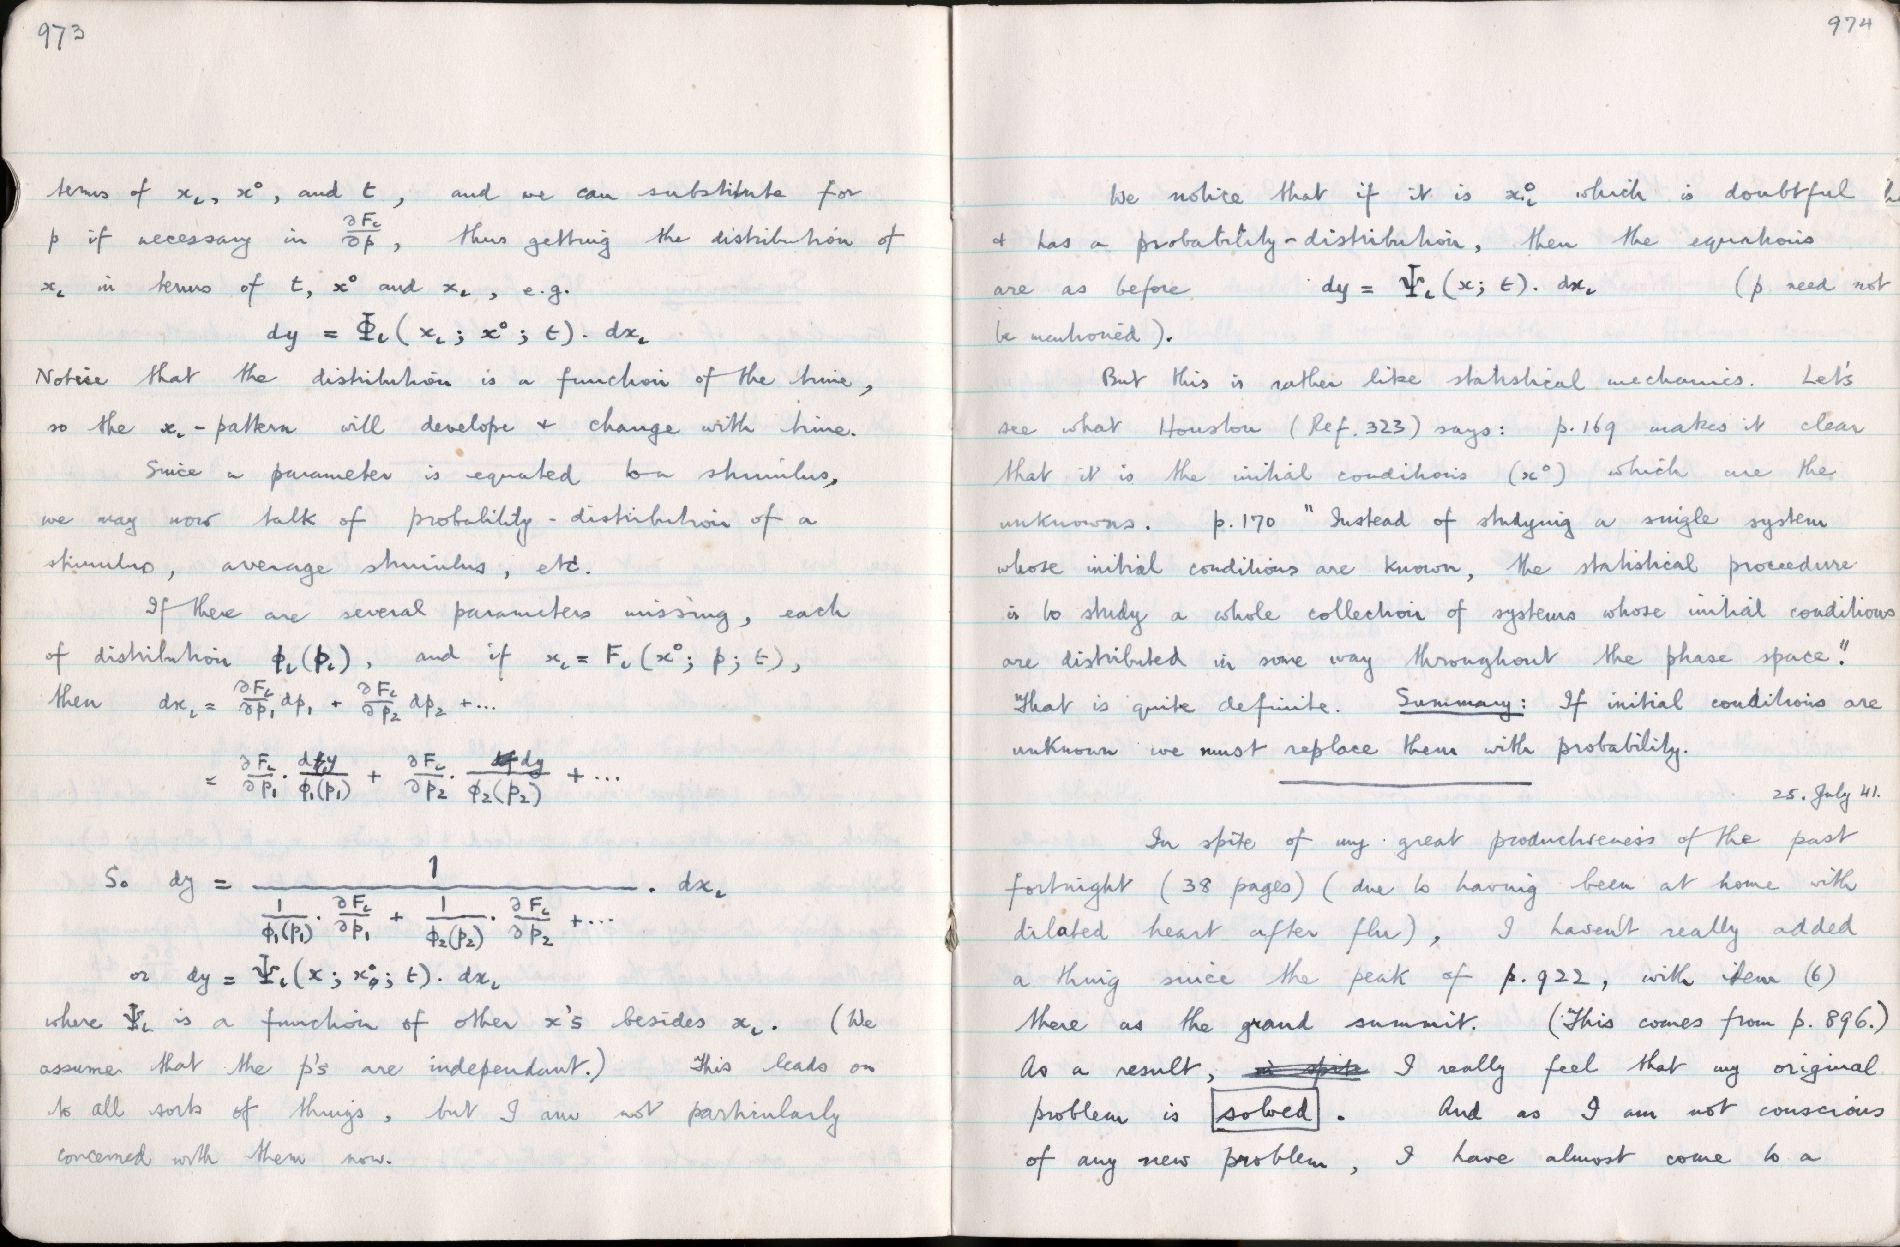 973
terms of xᵢ, x°, and t, and we can substitute for
p if necessary in ∂Fᵢ/∂p, thus getting the distribution of
xᵢ in terms of t, x° and xᵢ, e.g.
dy = Φᵢ(xᵢ; x°; t). dxᵢ
Notice that the distribution is a function of the time,
so the xᵢ-pattern will develope & change with time.
Since a parameter is equated to a stimulus,
we may now talk of probability-distribution of a
stimulus, average stimulus, etc.
If there are several parameters missing, each
of distribution ϕᵢ(pᵢ), and if xᵢ = Fᵢ(x°; p; t),
then dxᵢ = ∂Fᵢ/∂p₁ dp₁ + ∂Fᵢ/∂p₂ dp₂ + ...
= ∂Fᵢ/∂p₁ · dy/ϕ₁(p₁) + ∂Fᵢ/∂p₂ · dy/ϕ₂(p₂) + ...
So dy = 1/(1/ϕ₁(p₁) · ∂Fᵢ/∂p₁ + 1/ϕ₂(p₂) · ∂Fᵢ/∂p₂ + ...) . dxᵢ
or dy = Ψᵢ(x; x°; t). dxᵢ
where Ψᵢ is a function of other x's besides xᵢ. (We
assume that the p's are independant.) This leads on
to all sorts of things, but I am not particularly
concerned with them now.
974
We notice that if it is xᵢ° which is doubtful
& has a probability-distribution, then the equations
are as before dy = Ψᵢ(x; t). dxᵢ (p need not
be mentioned).
But this is rather like statistical mechanics. Let's
see what Houston (Ref. 323) says: p.169 makes it clear
that it is the initial conditions (x°) which are the
unknowns. p.170 "Instead of studying a single system
whose initial conditions are known, the statistical proceedure
is to study a whole collection of systems whose initial conditions
are distributed in some way throughout the phase space."
That is quite definite. Summary: If initial conditions are
unknown we must replace them with probability.
25. July 41.
In spite of my great productiveness of the past
fortnight (38 pages) (due to having been at home with
dilated heart after flu), I haven't really added
a thing since the peak of p.922, with item (6)
there as the grand summit. (This comes from p. 896.)
As a result, in spite I really feel that my original
problem is solved. And as I am not conscious
of any new problem, I have almost come to a